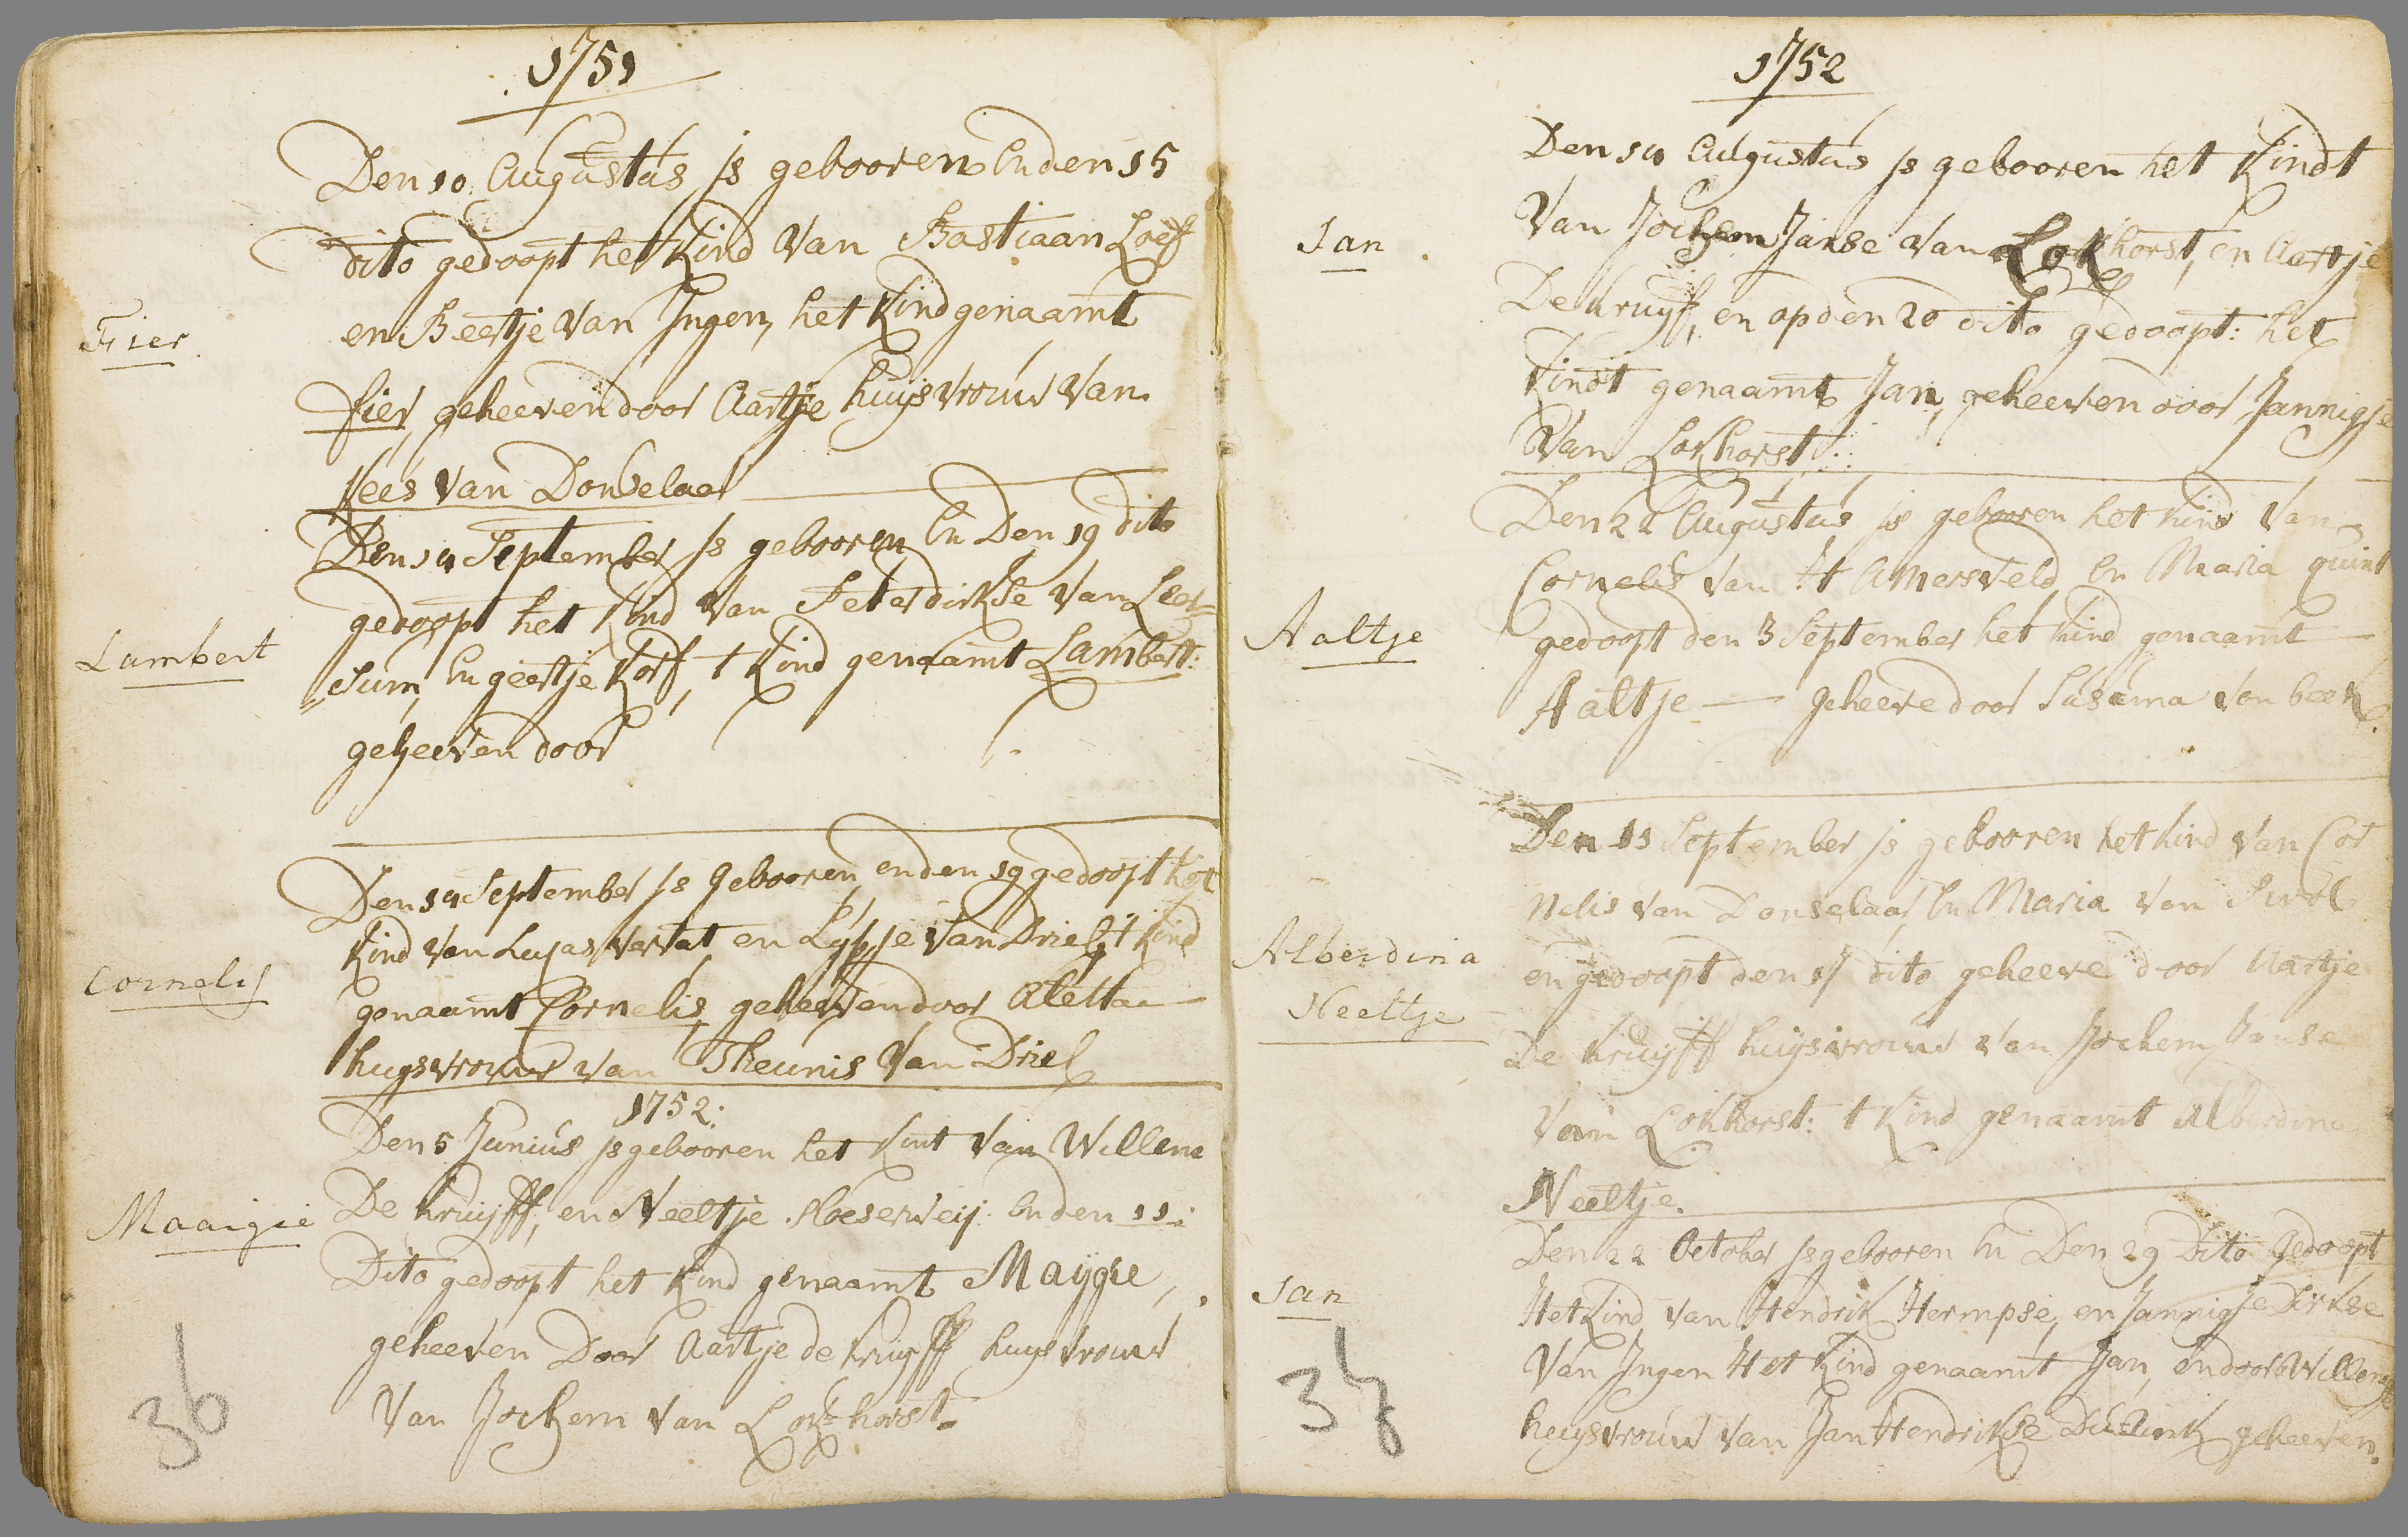 1751
Den 10 Augustus is gebooren En den 15
dito gedoopt het Kind Van Bastiaan Loeff
Fier
en Beertje Van Ingen, het Kind genaamt
fier, geheeven door Aartje huijsvrouw Van
Kees Van Donselaar
Den 14 September is gebooren En Den 19 dito
gedoopt het Kind Van Peter dirkse Van Leer=
Lambert
=sum, En geertje Korf, t Kind genaamt Lambert:
geheeven door
Den 14 September is Gebooren, en den 19 gedoopt het
Kind Van Lucas Verstat en Lijsje Van Driel, 't Kind
Cornelis
genaamt Cornelis, geheeven door Aletta
huysvrouw van Theunis Van Driel
1752:
Den 5 Junius is gebooren het Kint Van Willem
Maaigie
De Kruijff, en Neeltje Hoeserweij En den 11:
Dito gedoopt het Kind genaamt Maijgie,
geheeven Door Aartje de Kruijff huysvrouw
Van Jochem Van Lokhorst
36
1752
Den 14 Augustus is gebooren het Kindt
Jan
Van Jochem Janse Van Lokhorst, en Aartje
De Kruijf, en op den 20 dito gedoopt: het
Kindt genaamt Jan, geheeven door Jannigje
Van Lokhorst:
Den 22 Augustus is gebooren het Kind Van
Cornelis Van 't Amersveld En Maria quint
Aaltje
gedoopt den 3 September het kind genaamt
Aaltje — geheeve door Susanna Van beek
Den 11 September is gebooren het kind Van Cor
nelis Van Donselaar, En Maria Van
Alberdina
en gedoopt den 17 dito geheeve door Aartje
Neeltje
De Kruijff huijsvrouw Van Jochem Janse
Van Lokhorst: t Kind genaamt Alberdina
Neeltje.
Den 22 October is gebooren En Den 29 Dito Gedoopt
Jan
Het Kind van Hendrik Hermpse, en Jannigje Dirkse
Van Ingen Het Kind genaamt Jan, en door Willemje
huijsvrouw Van Jan Hendrikse geheeven.